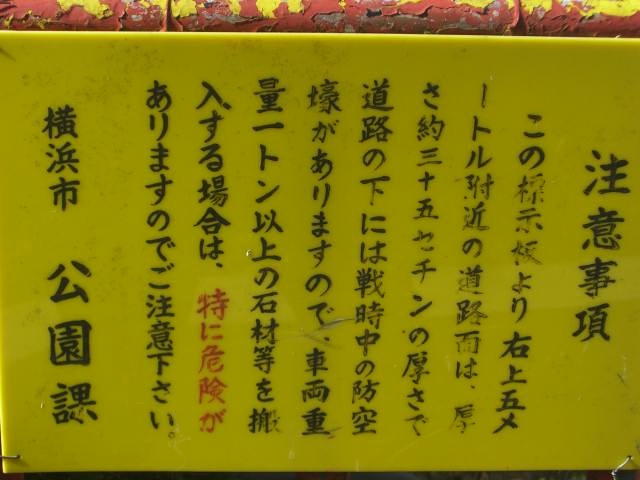 注意事項
この標示板より右上五メ
ートル附近の道路面は、厚
さ約三十五センチンの厚さで
道路の下には戦時中の防空
壕がありますので、車両重
量一トン以上の石材等を搬
入する場合は、特に危険が
ありますのでご注意下さい。
横浜市 公園課